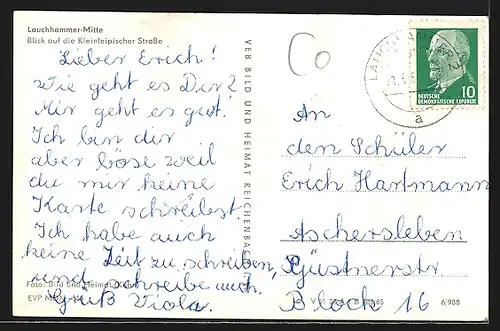 Lauchhammer-Mitte
Blick auf die Kleinleipischer Straße
Lieber Erich!
Wie geht es Dir?
Mir geht es gut.
Ich bin dir
aber böse weil
du mir keine
Karte schreibst.
Ich habe auch
keine Zeit zu schreiben,
und schreibe auch.
Gruß Viola.
Foto: Bild und Heimat
EVP M
VEB BILD UND HEIMAT REICHENBA
Co
LAUCHHAMMER 2
a
10
DEUTSCHE
DEMOKRATISCHE REPUBLIK
An
den Schüler
Erich Hartmann
Aschersleben
Güstnerstr
Block 16
6/988